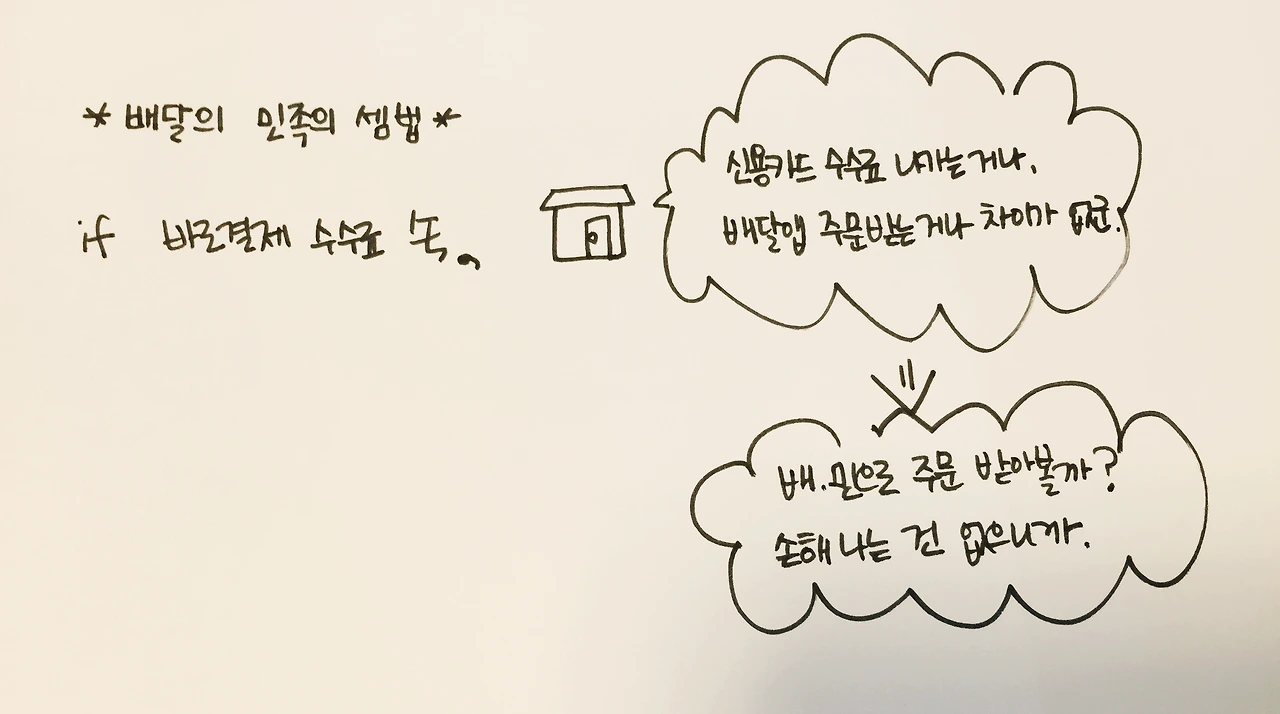 * 배달의 민족의 셈법 *
if 바로결제 수수료 쏙。
신용카드 수수료 나가는거나,
배달앱 주문받는거나 차이가 없군.
배.민으로 주문 받아볼까?
손해 나는 건 없으니까.